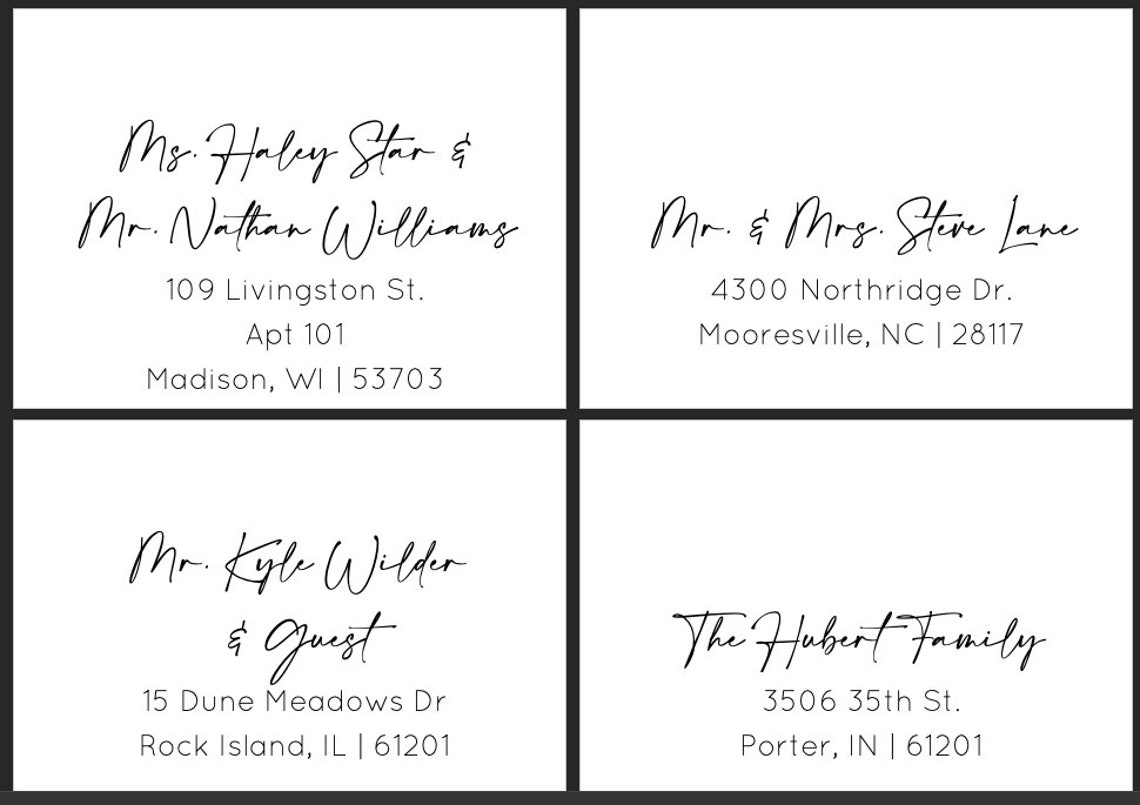 Ms. Haley Star &
Mr. Nathan Williams
109 Livingston St.
Apt 101
Madison, WI | 53703
Mr. & Mrs. Steve Lane
4300 Northridge Dr.
Mooresville, NC | 28117
Mr. Kyle Wilder
& Guest
15 Dune Meadows Dr
Rock Island, IL | 61201
The Hubert Family
3506 35th St.
Porter, IN | 61201